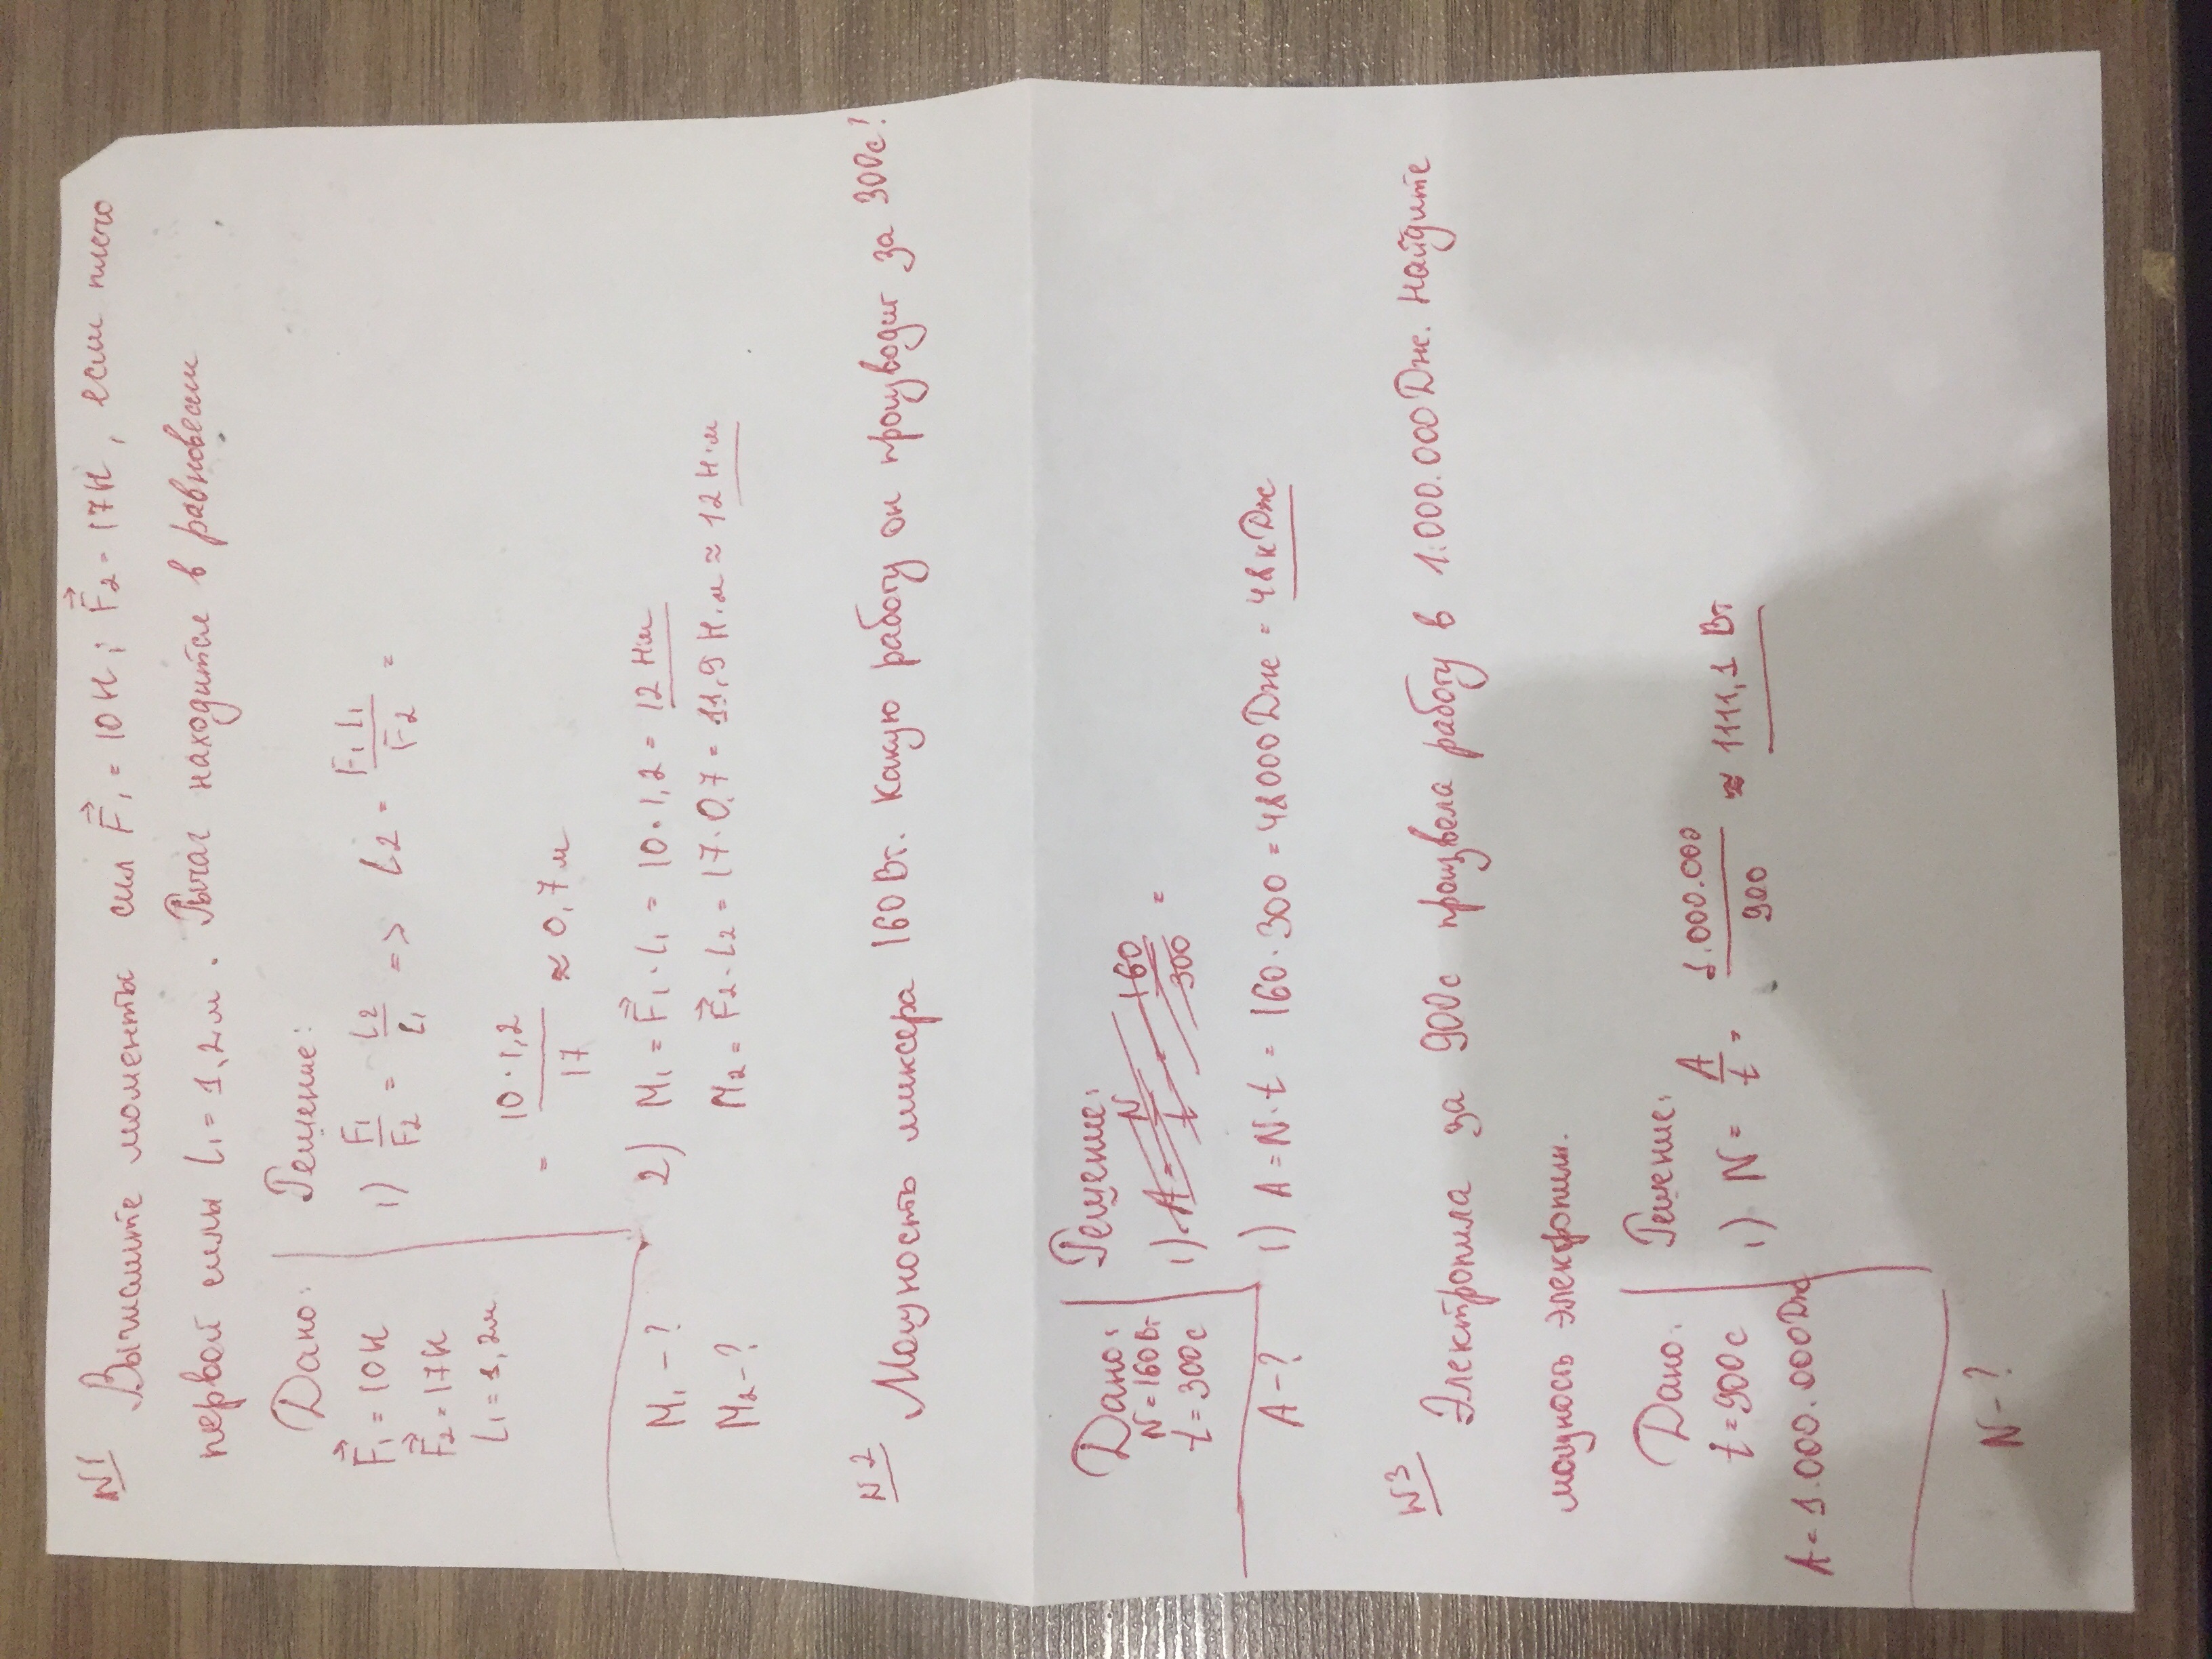 №1 Вычислите моменты сил F⃗₁ = 10Н; F⃗₂ = 17Н, если плечо
первой силы L₁ = 1,2м. Рычаг находится в равновесии
Дано: Решение:
F⃗₁ = 10Н
F⃗₂ = 17Н
L₁ = 1,2м
M₁ - ?
M₂ - ?
1) F₁/F₂ = L₂/L₁ => L₂ = F₁L₁/F₂ =
= 10·1,2/17 ≈ 0,7м
2) M₁ = F⃗₁·L₁ = 10·1,2 = 12 Нм
M₂ = F⃗₂·L₂ = 17·0,7 = 11,9 Н·м ≈ 12 Н·м
№2 Мощность миксера 160Вт. Какую работу он производит за 300с?
Дано: Решение:
N = 160Вт
t = 300с
A - ?
1) A = N/t = 160/300 =
1) A = N·t = 160·300 = 48000Дж = 48кДж
№3 Электропила за 900с произвела работу в 1.000.000Дж. Найдите
мощность электропилы.
Дано: Решение:
t = 900с
A = 1.000.000Дж
N - ?
1) N = A/t = 1.000.000/900 ≈ 1111,1 Вт